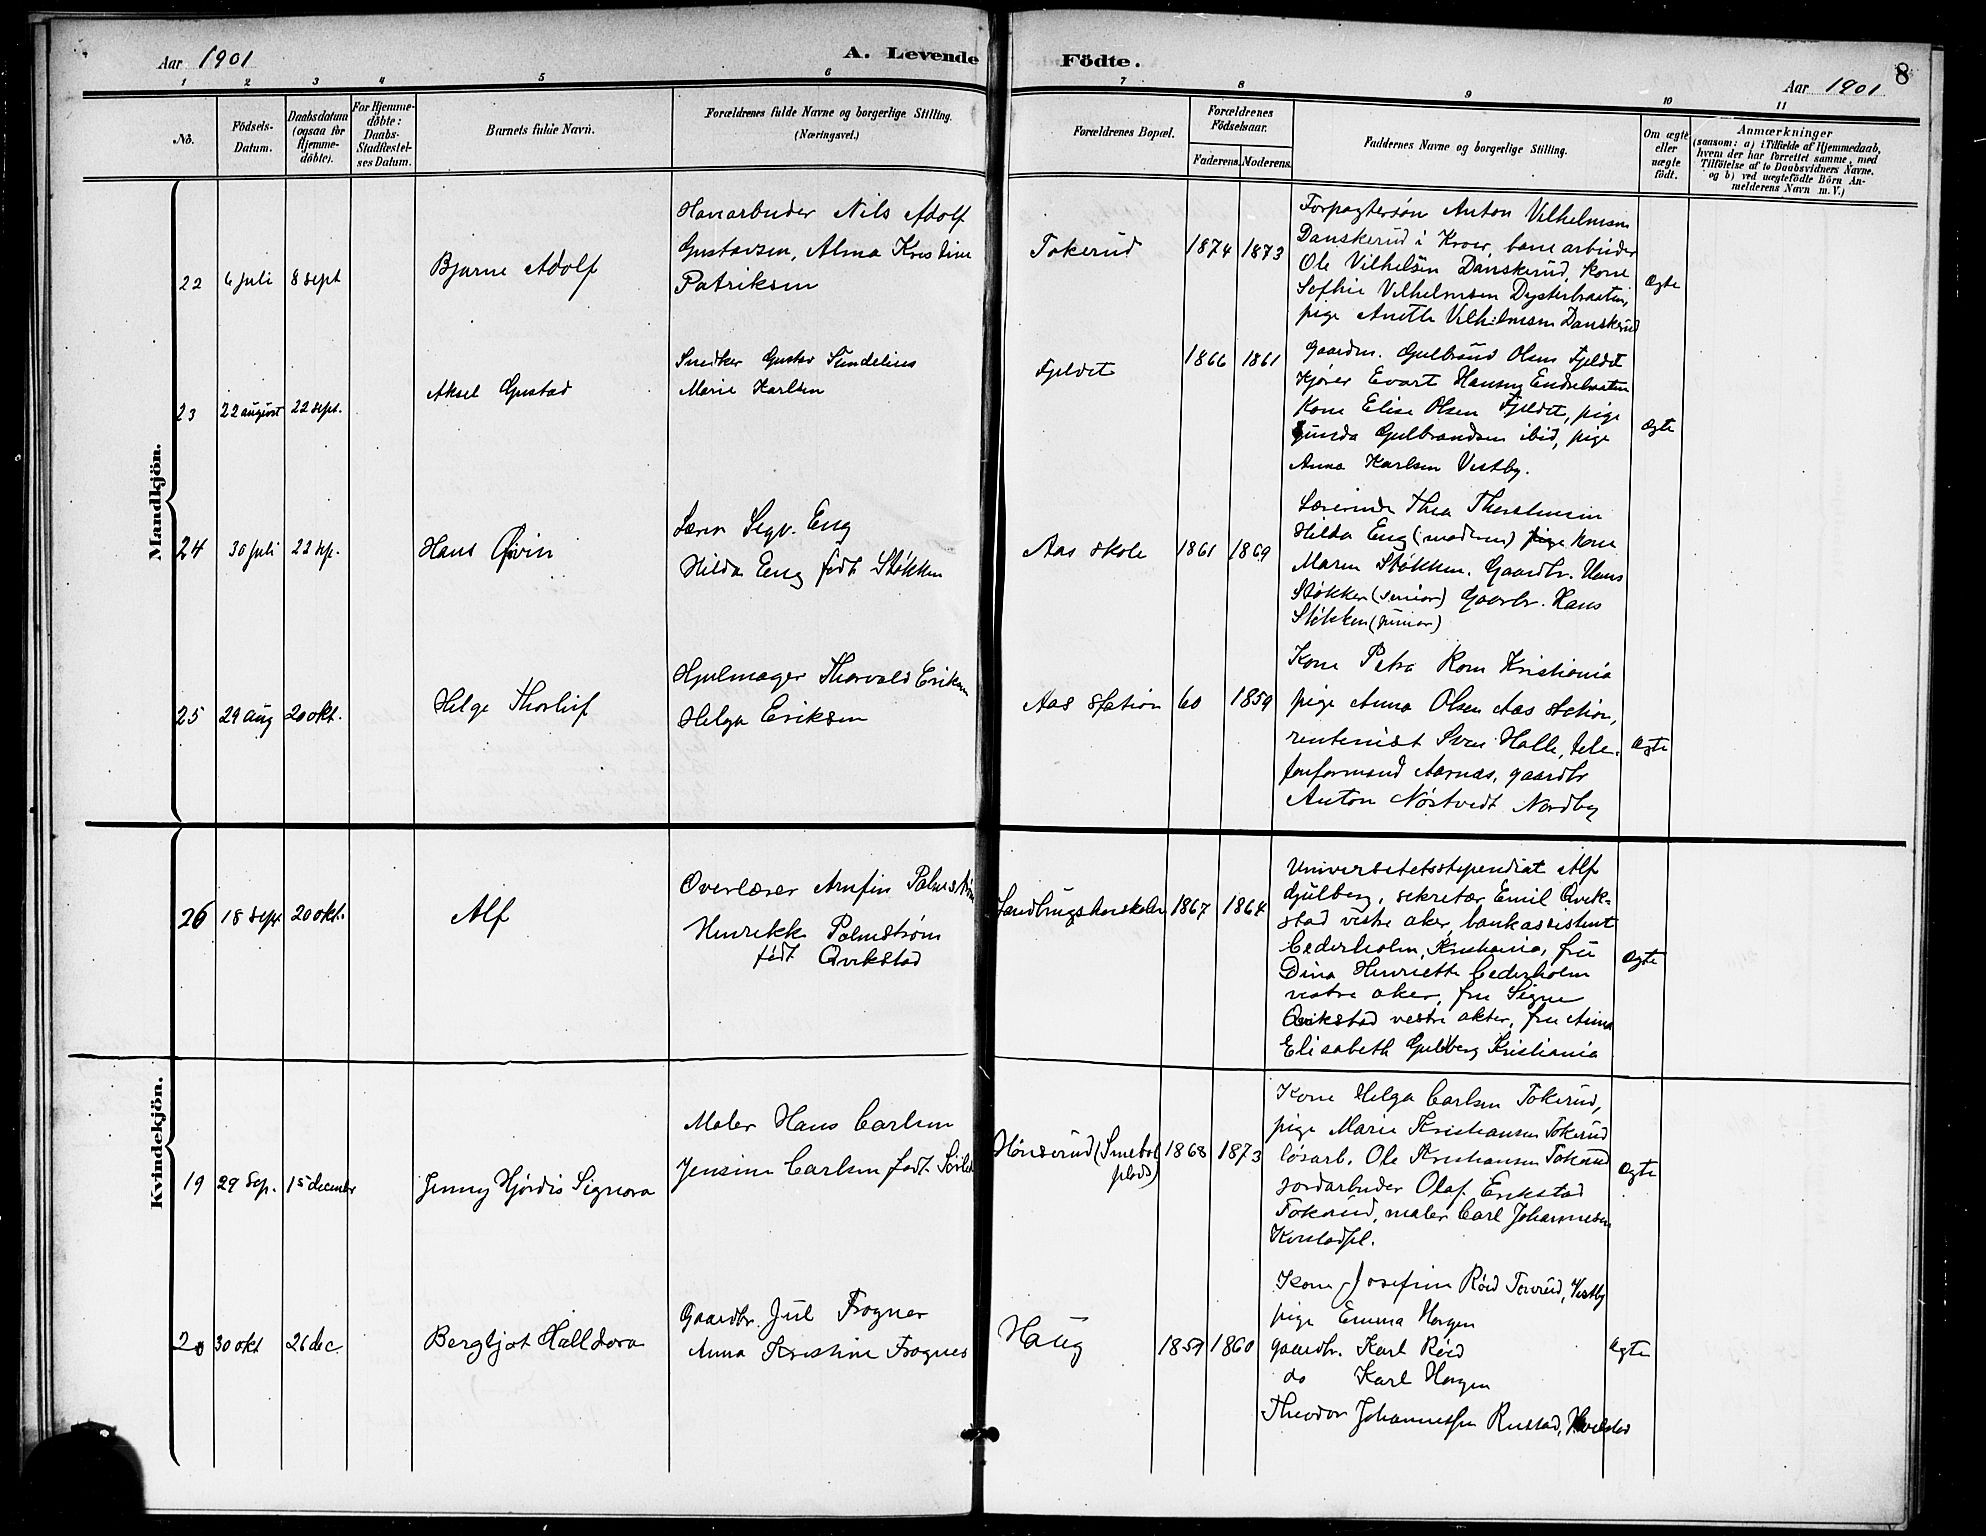 Aar 1901
A. Levende Födte.
Aar 1901
8
1 2 3 4 5 6 7 8 9 10 11
No.
Födsels-
Datum.
Daabsdatum
(ogsaa for
Hjemme-
döbte).
For Hjemme-
döbte:
Daabs-
Stadfæstel-
ses Datum.
Barnets fulde Navn.
Forældrenes fulde Navne og borgerlige Stilling.
(Næringsvei.)
Forældrenes Bopæl.
Forældrenes
Födselsaar.
Faderens.
Moderens.
Faddernes Navne og borgerlige Stilling.
Om ægte
eller
uægte
födt.
Anmærkninger
(saasom: a) i Tilfælde af Hjemmedaab,
hvem der har forrettet samme, med
Tilföielse af to Daabsvidners Navne,
og b) ved uægtefödte Börn An-
melderens Navn m. V.)
Mandkjön.
22 6 juli 8 sept
Bjarne Adolf
Havarbeider Nils Adolf
Gustavsen, Alma Kristine
Patriksen
Tokerud
1874 1873
Forpagtersøn Anton Vilhelmsen
Danskerud i Kroer, banearbeider
Ole Vilhelsen Danskerud, Kone
Sofhie Vilhelmsen Dysterbraaten,
pige Anette Vilhelmsen Danskerud
Ægte
23 22 august 22 sept.
Aksel Gustad
Snedker Gustav Sundelius
Marie Karlsen
Fjeldet
1866 1861
Gaardm. Gulbrand Olsen Fjeldet
Kjører Evart Hansen
Kone Elise Olsen Fjeldet, pige
Gunda Gulbrandsen ibid, pige
Anna Karlsen Vestby.
Ægte
24 30 juli 22 sep.
Hans Øivin
Lærer Sigv. Eng
Hilda Eng født Støkken
Aas skole
1861 1869
Lærerinde Thea
Hilda Eng (moderen) Kone
Maren Støkken. Gaardbr. Hans
Støkken (senior) Gaarbr. Hans
Støkken (junior)
25 29 aug 20 okt.
Helge Thorleif
Hjulmager Thorvald Eriksen
Helga Eriksen
Aas station
60 1859
Kone Petra Rom Kristiania
pige Anna Olsen Aas station,
rentenist Sven Holle, tele-
fonformand Aarnæs, gaardbr
Anton Nøstvedt Nordby
Ægte
26 18 sept 20 okt.
Alf
Overlærer Arnfin Palmstrøm
Henrikke Palmstrøm
født Qvikstad
Landbrugshøiskolen
1867 1864
Universitetsstipendiat Alf
Gulberg, sekretær Emil Qvik-
stad vestre aker, bankassistent
Cederholm, Kristiania, fru
Dina Henriette Cederholm
vestre aker, fru Signe
Qvikstad vestre akter, fru Anna
Elisabeth Guldberg Kristiania
Ægte
Kvindekjön.
19 29 sep. 15 december
Jenny Hjørdis Signora
Maler Hans Carlsen
Jensine Carlsen født
Hønserud (Smebøl
plads)
1868 1873
Kone Helga Carlsen Tokerud,
pige Marie Kristiansen Tokerud
løsarb. Ole Kristiansen Tokerud
jordarbeider Olaf Erikstad
Tokerud, maler Carl Johannesen
20 30 okt 26 dec.
Bergljot Halldora
Gaardbr. Jul Frogner
Anna Kristine Frogner
Haug
1859 1860
Kone Josefine Røed Vestby
pige Emma Horgen
gaardbr. Karl Røed
do Karl Horgen
Theodor Johannessen Rustad,
Ægte